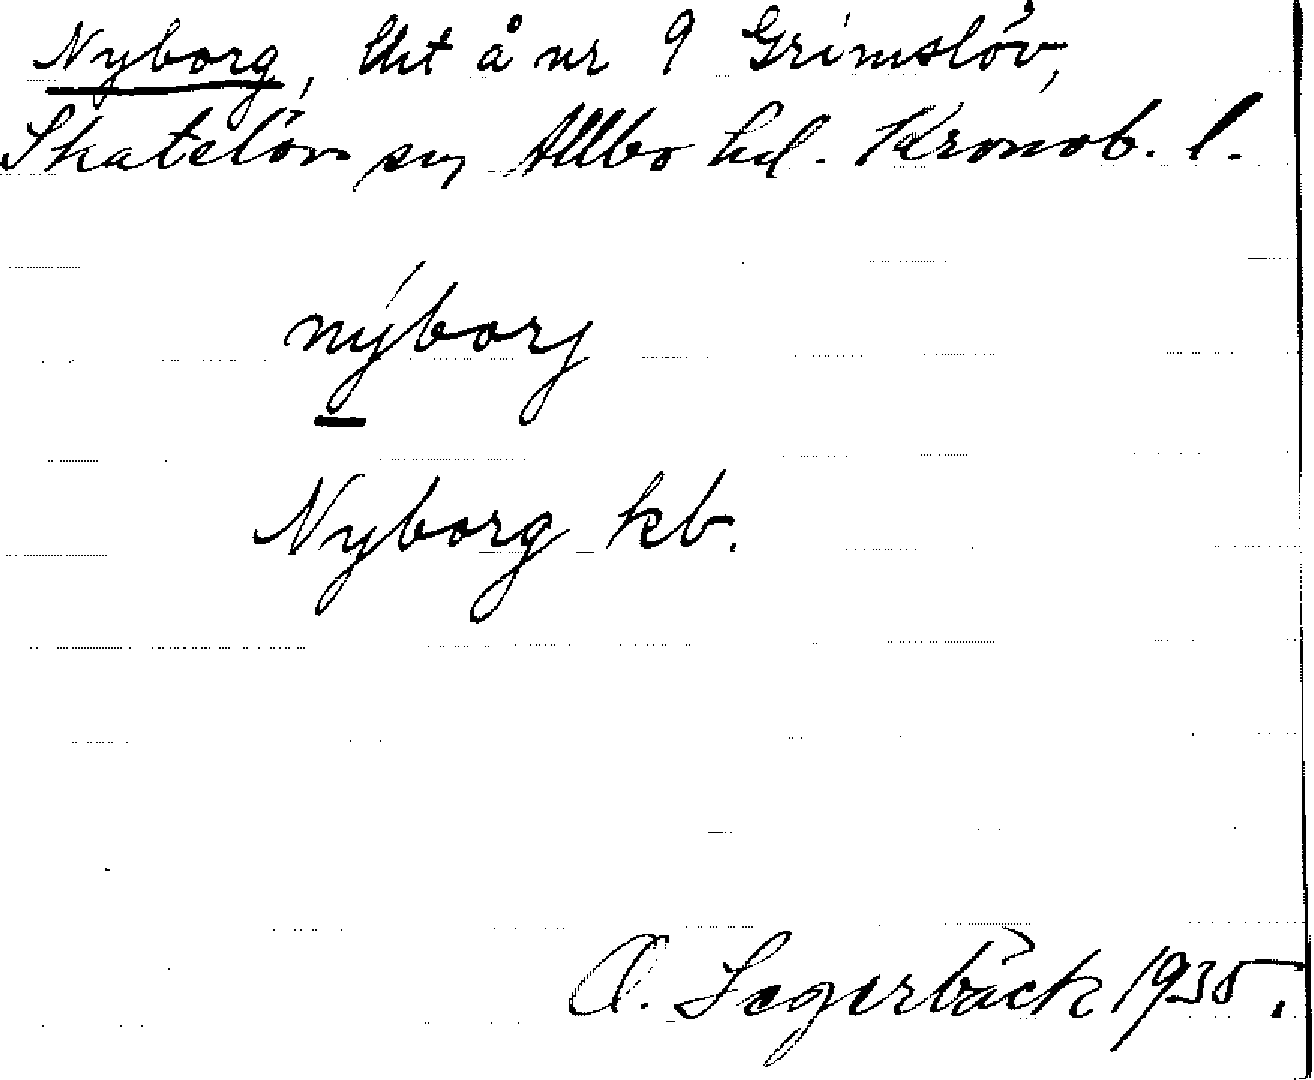 Nyborg, Uht å nr 9 Grimslöv,
Skatelöv sn Allbo hd. Kronob. l.
nýborj
Nyborg kb.
O. Lagerbäck 1935.